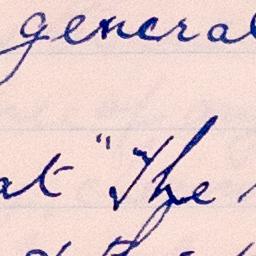 general
at "The